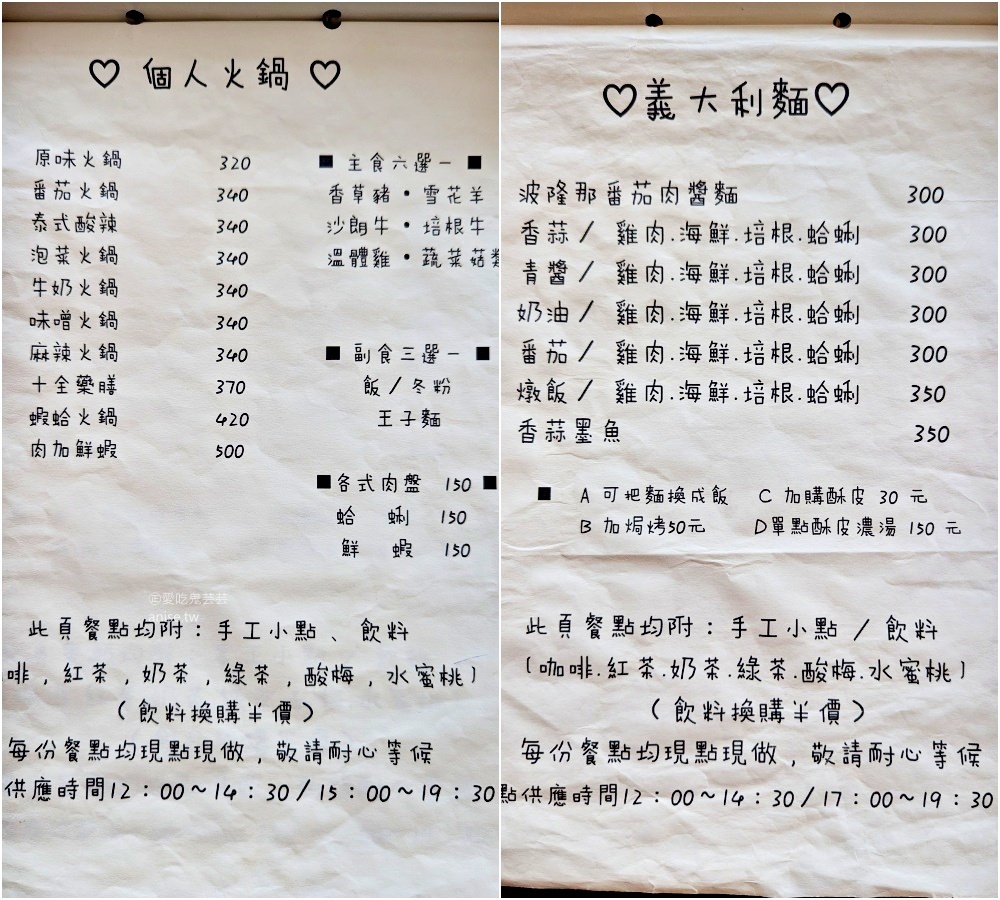 ♡ 個人火鍋 ♡
原味火鍋 320
番茄火鍋 340
泰式酸辣 340
泡菜火鍋 340
牛奶火鍋 340
味噌火鍋 340
麻辣火鍋 340
十全藥膳 370
蝦蛤火鍋 420
肉加鮮蝦 500
■ 主食六選一 ■
香草豬・雪花羊
沙朗牛・培根牛
溫體雞・蔬菜菇類
■ 副食三選一 ■
飯/冬粉
王子麵
■各式肉盤 150■
蛤蜊 150
鮮蝦 150
@愛吃鬼芸芸
anise.tw
此頁餐點均附:手工小點、飲料
啡,紅茶,奶茶,綠茶,酸梅,水蜜桃)
(飲料換購半價)
每份餐點均現點現做,敬請耐心等候
供應時間12:00~14:30/15:00~19:30
♡義大利麵♡
波隆那番茄肉醬麵 300
香蒜/ 雞肉.海鮮.培根.蛤蜊 300
青醬/ 雞肉.海鮮.培根.蛤蜊 300
奶油/ 雞肉.海鮮.培根.蛤蜊 300
番茄/ 雞肉.海鮮.培根.蛤蜊 300
燉飯/ 雞肉.海鮮.培根.蛤蜊 350
香蒜墨魚 350
■ A 可把麵換成飯 C 加購酥皮 30 元
B 加焗烤50元 D單點酥皮濃湯 150 元
此頁餐點均附:手工小點 / 飲料
(咖啡.紅茶.奶茶.綠茶.酸梅.水蜜桃)
(飲料換購半價)
每份餐點均現點現做,敬請耐心等候
點供應時間12:00~14:30/17:00~19:30